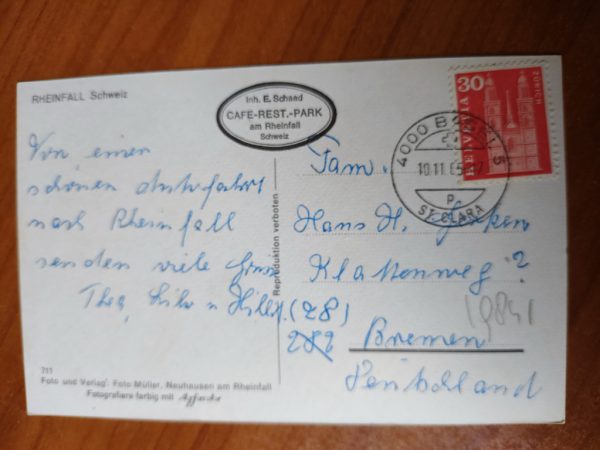 RHEINFALL Schweiz
Inh. E. Schaad
CAFE-REST.-PARK
am Rheinfall
Schweiz
30
HELVETIA
ZÜRICH
4000 BASEL 5
10.11.65
P
ST. CLARA
Von einer
schönen Autofahrt
nach Rheinfall
senden viele
Thea,
Reproduktion verboten
Fam.
Hans H.
Klattenweg
(28)
282 Bremen
19841
Deutschland
711
Foto und Verlag: Foto Müller, Neuhausen am Rheinfall
Fotografiere farbig mit Agfacolor